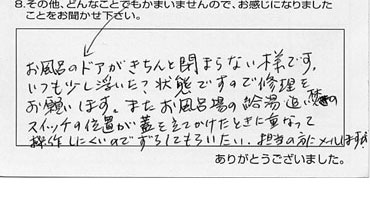 8.その他、どんなことでもかまいませんので、お感じになりました
ことをお聞かせ下さい。
お風呂のドアがきちんと閉まらない様です。
いつも少し浮いた?状態ですので修理を
お願いします。またお風呂場の給湯追い焚きの
スイッチの位置が蓋を立てかけたときに重なって
操作しにくいのでずらしてもらいたい。担当の方にメールします
ありがとうございました。